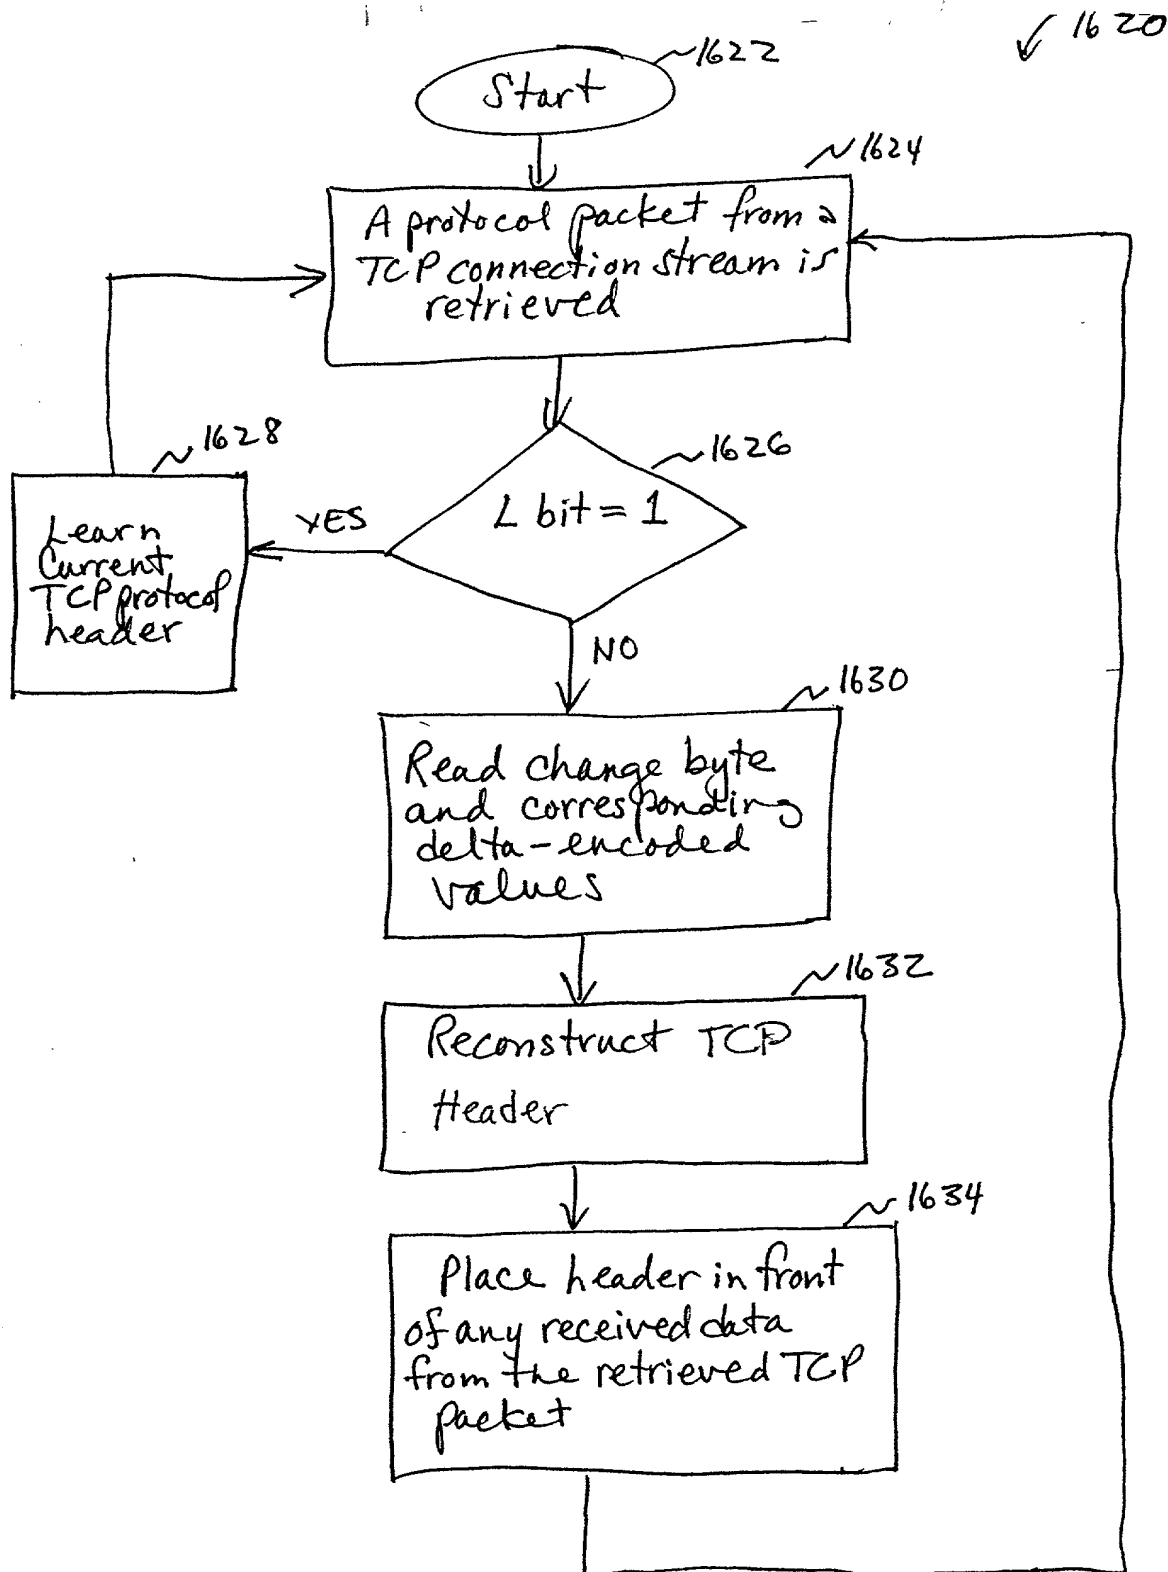 1620
Start
1622
1624
A protocol packet from a
TCP connection stream is
retrieved
1628
1626
L bit = 1
YES
Learn
Current
TCP protocol
header
NO
1630
Read change byte
and corresponding
delta-encoded
values
1632
Reconstruct TCP
Header
1634
Place header in front
of any received data
from the retrieved TCP
packet